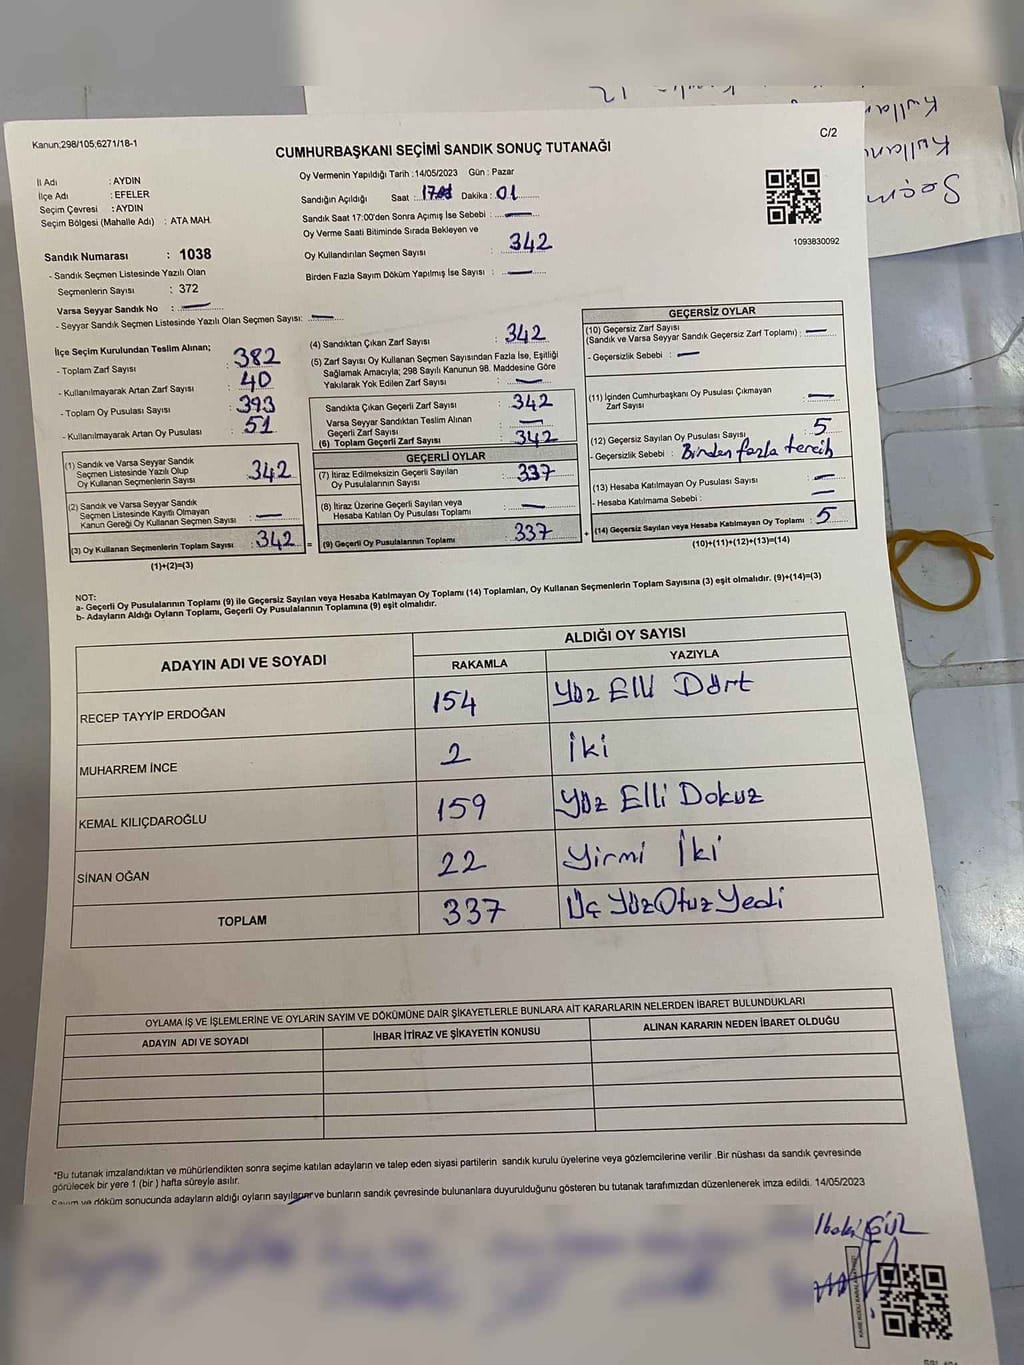 Kanun;298/105,6271/18-1
C/2
CUMHURBAŞKANI SEÇİMİ SANDIK SONUÇ TUTANAĞI
İl Adı : AYDIN
İlçe Adı : EFELER
Seçim Çevresi : AYDIN
Seçim Bölgesi (Mahalle Adı) : ATA MAH.
Oy Vermenin Yapıldığı Tarih : 14/05/2023 Gün : Pazar
Sandığın Açıldığı Saat : 17 Dakika : 01
Sandık Saat 17:00'den Sonra Açımış İse Sebebi : —
Oy Verme Saati Bitiminde Sırada Bekleyen ve
Oy Kullandırılan Seçmen Sayısı : 342
Birden Fazla Sayım Döküm Yapılmış İse Sayısı : —
1093830092
Sandık Numarası : 1038
- Sandık Seçmen Listesinde Yazılı Olan
Seçmenlerin Sayısı : 372
Varsa Seyyar Sandık No : —
- Seyyar Sandık Seçmen Listesinde Yazılı Olan Seçmen Sayısı: —
İlçe Seçim Kurulundan Teslim Alınan;
- Toplam Zarf Sayısı : 382
- Kullanılmayarak Artan Zarf Sayısı : 40
- Toplam Oy Pusulası Sayısı : 393
- Kullanılmayarak Artan Oy Pusulası : 51
(1) Sandık ve Varsa Seyyar Sandık
Seçmen Listesinde Yazılı Olup
Oy Kullanan Seçmenlerin Sayısı : 342
(2) Sandık ve Varsa Seyyar Sandık
Seçmen Listesinde Kayıtlı Olmayan
Kanun Gereği Oy Kullanan Seçmen Sayısı : —
(3) Oy Kullanan Seçmenlerin Toplam Sayısı : 342 =
(1)+(2)=(3)
(4) Sandıktan Çıkan Zarf Sayısı : 342
(5) Zarf Sayısı Oy Kullanan Seçmen Sayısından Fazla İse, Eşitliği
Sağlamak Amacıyla; 298 Sayılı Kanunun 98. Maddesine Göre
Yakılarak Yok Edilen Zarf Sayısı : —
Sandıkta Çıkan Geçerli Zarf Sayısı : 342
Varsa Seyyar Sandıktan Teslim Alınan
Geçerli Zarf Sayısı : —
(6) Toplam Geçerli Zarf Sayısı : 342
GEÇERLİ OYLAR
(7) İtiraz Edilmeksizin Geçerli Sayılan
Oy Pusulalarının Sayısı : 337
(8) İtiraz Üzerine Geçerli Sayılan veya
Hesaba Katılan Oy Pusulası Toplamı : —
(9) Geçerli Oy Pusulalarının Toplamı : 337 +
GEÇERSİZ OYLAR
(10) Geçersiz Zarf Sayısı
(Sandık ve Varsa Seyyar Sandık Geçersiz Zarf Toplamı) : —
- Geçersizlik Sebebi : —
(11) İçinden Cumhurbaşkanı Oy Pusulası Çıkmayan
Zarf Sayısı : —
(12) Geçersiz Sayılan Oy Pusulası Sayısı : 5
- Geçersizlik Sebebi : Binden fazla tercih
(13) Hesaba Katılmayan Oy Pusulası Sayısı : —
- Hesaba Katılmama Sebebi : —
(14) Geçersiz Sayılan veya Hesaba Katılmayan Oy Toplamı : 5
(10)+(11)+(12)+(13)=(14)
NOT:
a- Geçerli Oy Pusulalarının Toplamı (9) ile Geçersiz Sayılan veya Hesaba Katılmayan Oy Toplamı (14) Toplamları, Oy Kullanan Seçmenlerin Toplam Sayısına (3) eşit olmalıdır. (9)+(14)=(3)
b- Adayların Aldığı Oyların Toplamı, Geçerli Oy Pusulalarının Toplamına (9) eşit olmalıdır.
ADAYIN ADI VE SOYADI
ALDIĞI OY SAYISI
RAKAMLA YAZIYLA
RECEP TAYYİP ERDOĞAN 154 Yüz Elli Dört
MUHARREM İNCE 2 İki
KEMAL KILIÇDAROĞLU 159 Yüz Elli Dokuz
SİNAN OĞAN 22 Yirmi İki
TOPLAM 337 Üç Yüz Otuz Yedi
OYLAMA İŞ VE İŞLEMLERİNE VE OYLARIN SAYIM VE DÖKÜMÜNE DAİR ŞİKAYETLERLE BUNLARA AİT KARARLARIN NELERDEN İBARET BULUNDUKLARI
ADAYIN ADI VE SOYADI İHBAR İTİRAZ VE ŞİKAYETİN KONUSU ALINAN KARARIN NEDEN İBARET OLDUĞU
*Bu tutanak imzalandıktan ve mühürlendikten sonra seçime katılan adayların ve talep eden siyasi partilerin sandık kurulu üyelerine veya gözlemcilerine verilir .Bir nüshası da sandık çevresinde
görülecek bir yere 1 (bir ) hafta süreyle asılır.
Sayım ve döküm sonucunda adayların aldığı oyların sayılarını ve bunların sandık çevresinde bulunanlara duyurulduğunu gösteren bu tutanak tarafımızdan düzenlenerek imza edildi. 14/05/2023
GÜL
Seçim
Kullan
Kullan
12